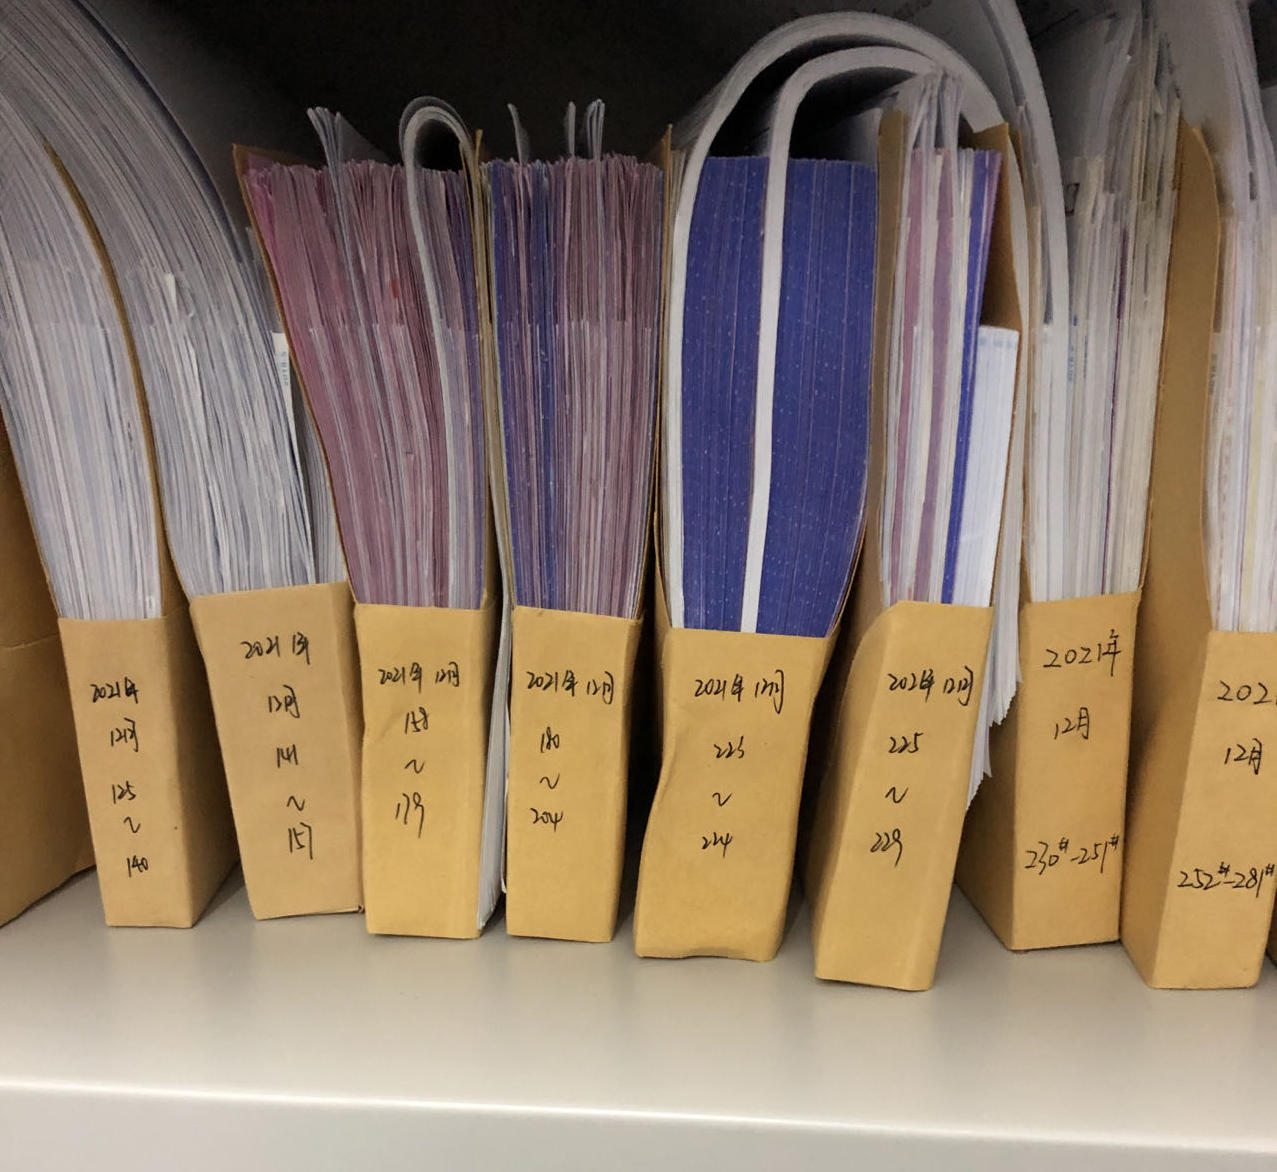 2021年
12月
125
~
140
2021年
12月
141
~
157
2021年 12月
158
~
179
2021年 12月
180
~
204
2021年 12月
~
224
2021年 12月
225
~
229
2021年
12月
230#-251#
202
12月
252#-281#